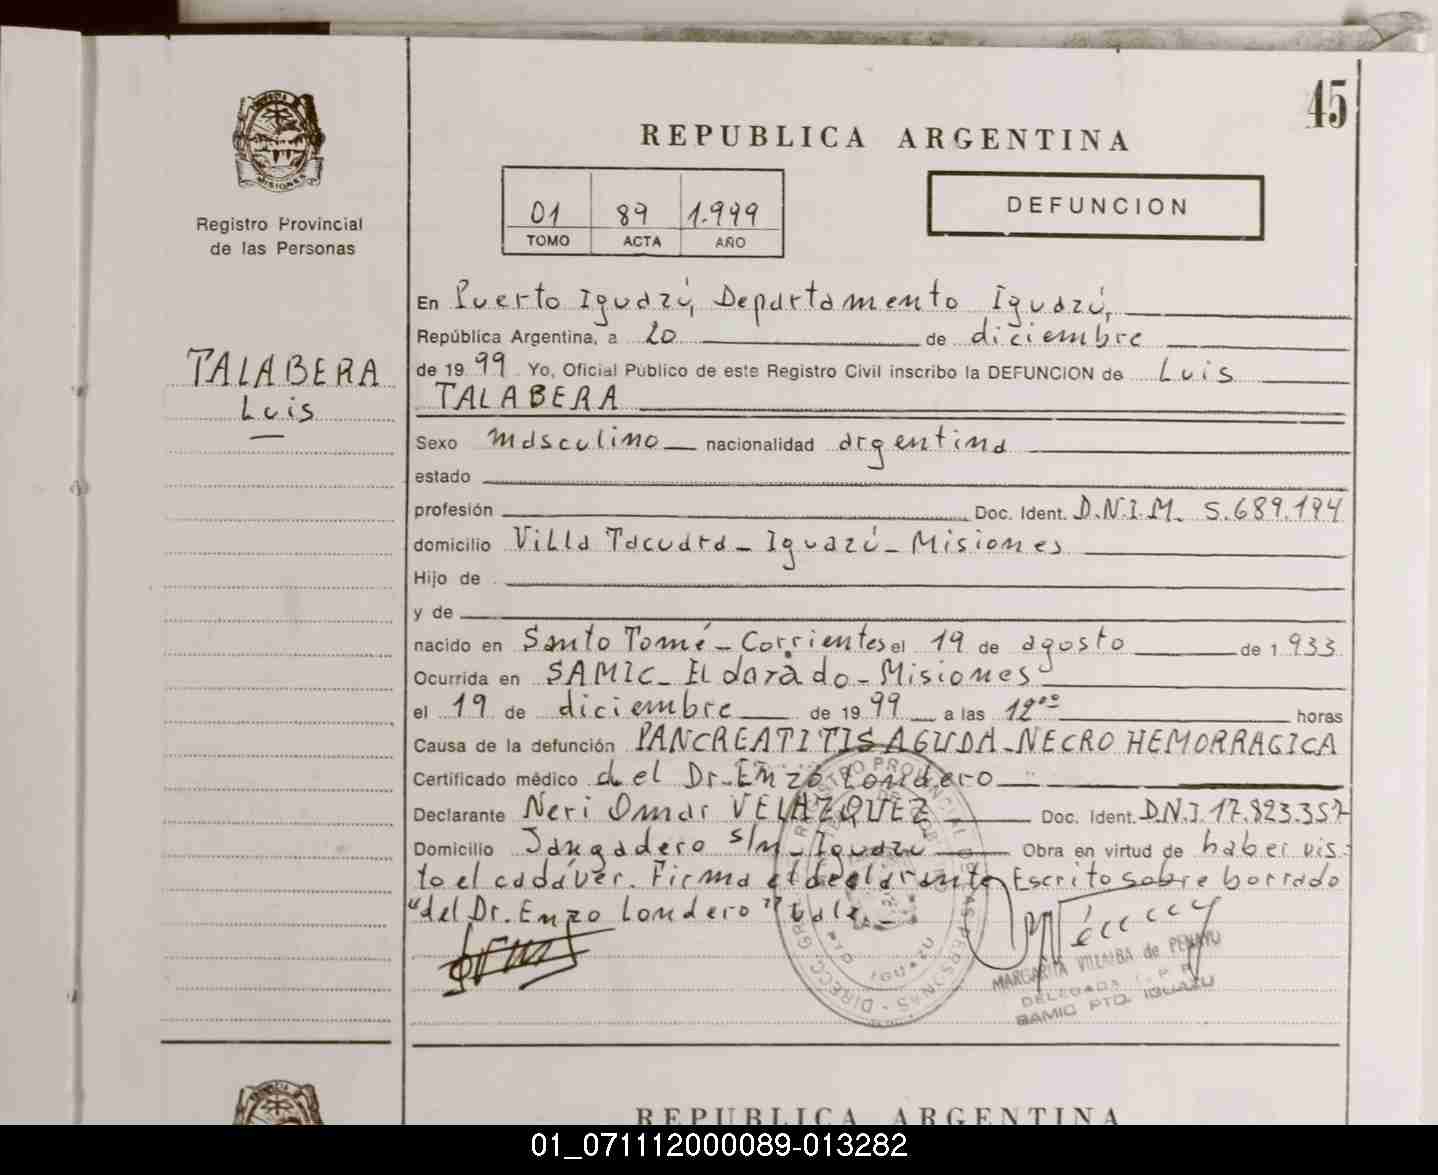 45
REPUBLICA ARGENTINA
MISIONES
Registro Provincial
de las Personas
01 89 1.999
TOMO ACTA AÑO
DEFUNCION
TALABERA
Luis
En Puerto Iguazú, Departamento Iguazú,
República Argentina, a 20 de diciembre
de 19 99 Yo, Oficial Público de este Registro Civil inscribo la DEFUNCION de Luis
TALABERA
Sexo masculino nacionalidad argentina
estado
profesión Doc. Ident. D.N.I.M. 5.689.194
domicilio Villa Tacuara - Iguazú - Misiones
Hijo de
y de
nacido en Santo Tomé - Corrientes el 19 de agosto de 1 933
Ocurrida en SAMIC - Eldorado - Misiones
el 19 de diciembre de 19 99 a las 12⁰⁰ horas
Causa de la defunción PANCREATITIS AGUDA - NECRO HEMORRAGICA
Certificado médico del Dr. Enzo Londero
Declarante Neri Omar VELAZQUEZ Doc. Ident. D.N.I. 17.823.357
Domicilio Jangadero s/n - Iguazú Obra en virtud de haber vis-
to el cadáver. Firma el declarante Escrito sobre borrado
"del Dr. Enzo Londero" vale.-
MARGARITA VILLALBA de PENAYU
DELEGADA
SAMIC PTO. IGUAZU
REPUBLICA ARGENTINA
01_071112000089-013282